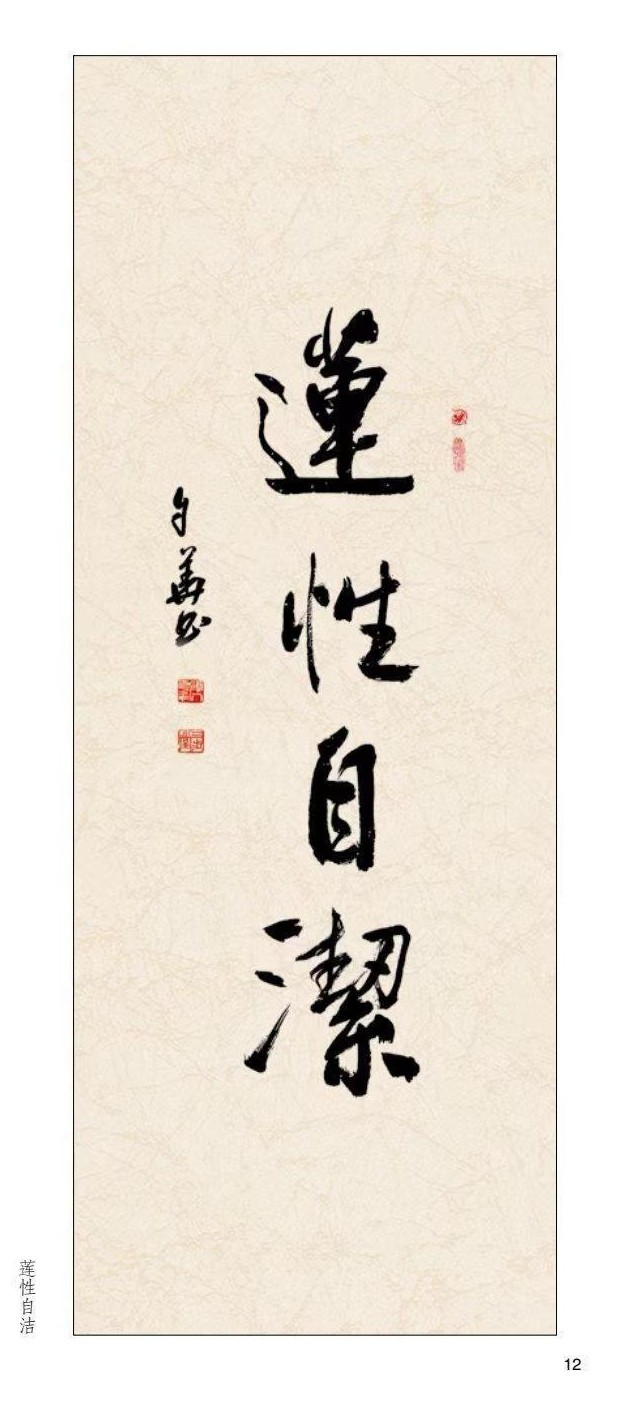 蓮性自潔
莲性自洁
12